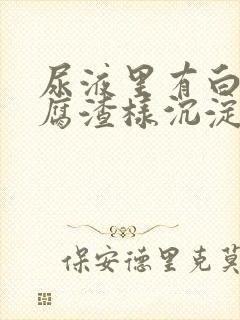 尿液里有白
腐渣样沉淀
保安德里克莫